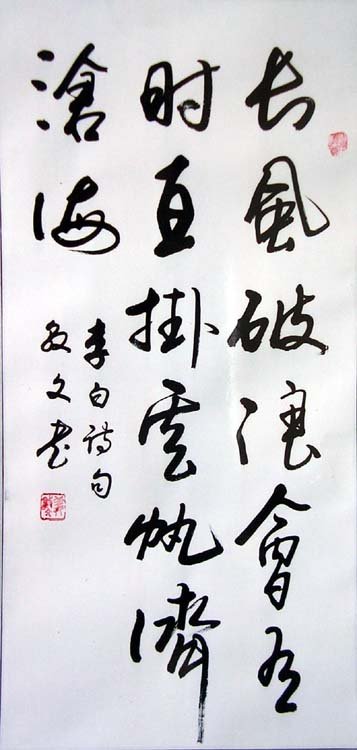 长風破浪會有
时直掛雲帆濟
滄海
李白詩句
文书